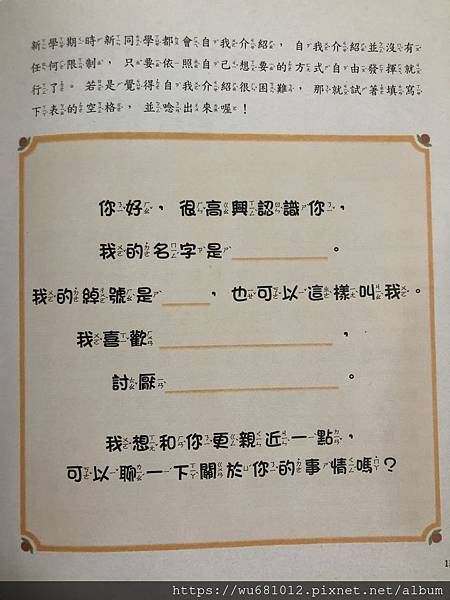 新學期時新同學都會自我介紹，自我介紹並沒有
任何限制，只要依照自己想要的方式自由發揮就
行了。若是覺得自我介紹很困難，那就試著填寫
下表的空格，並唸出來喔！
你好，很高興認識你，
我的名字是＿＿＿＿＿＿。
我的綽號是＿＿＿，也可以這樣叫我。
我喜歡＿＿＿＿＿＿＿＿＿＿，
討厭＿＿＿＿＿＿＿＿＿＿。
我想和你更親近一點，
可以聊一下關於你的事情嗎？
https://wu681012.pixnet.net/album